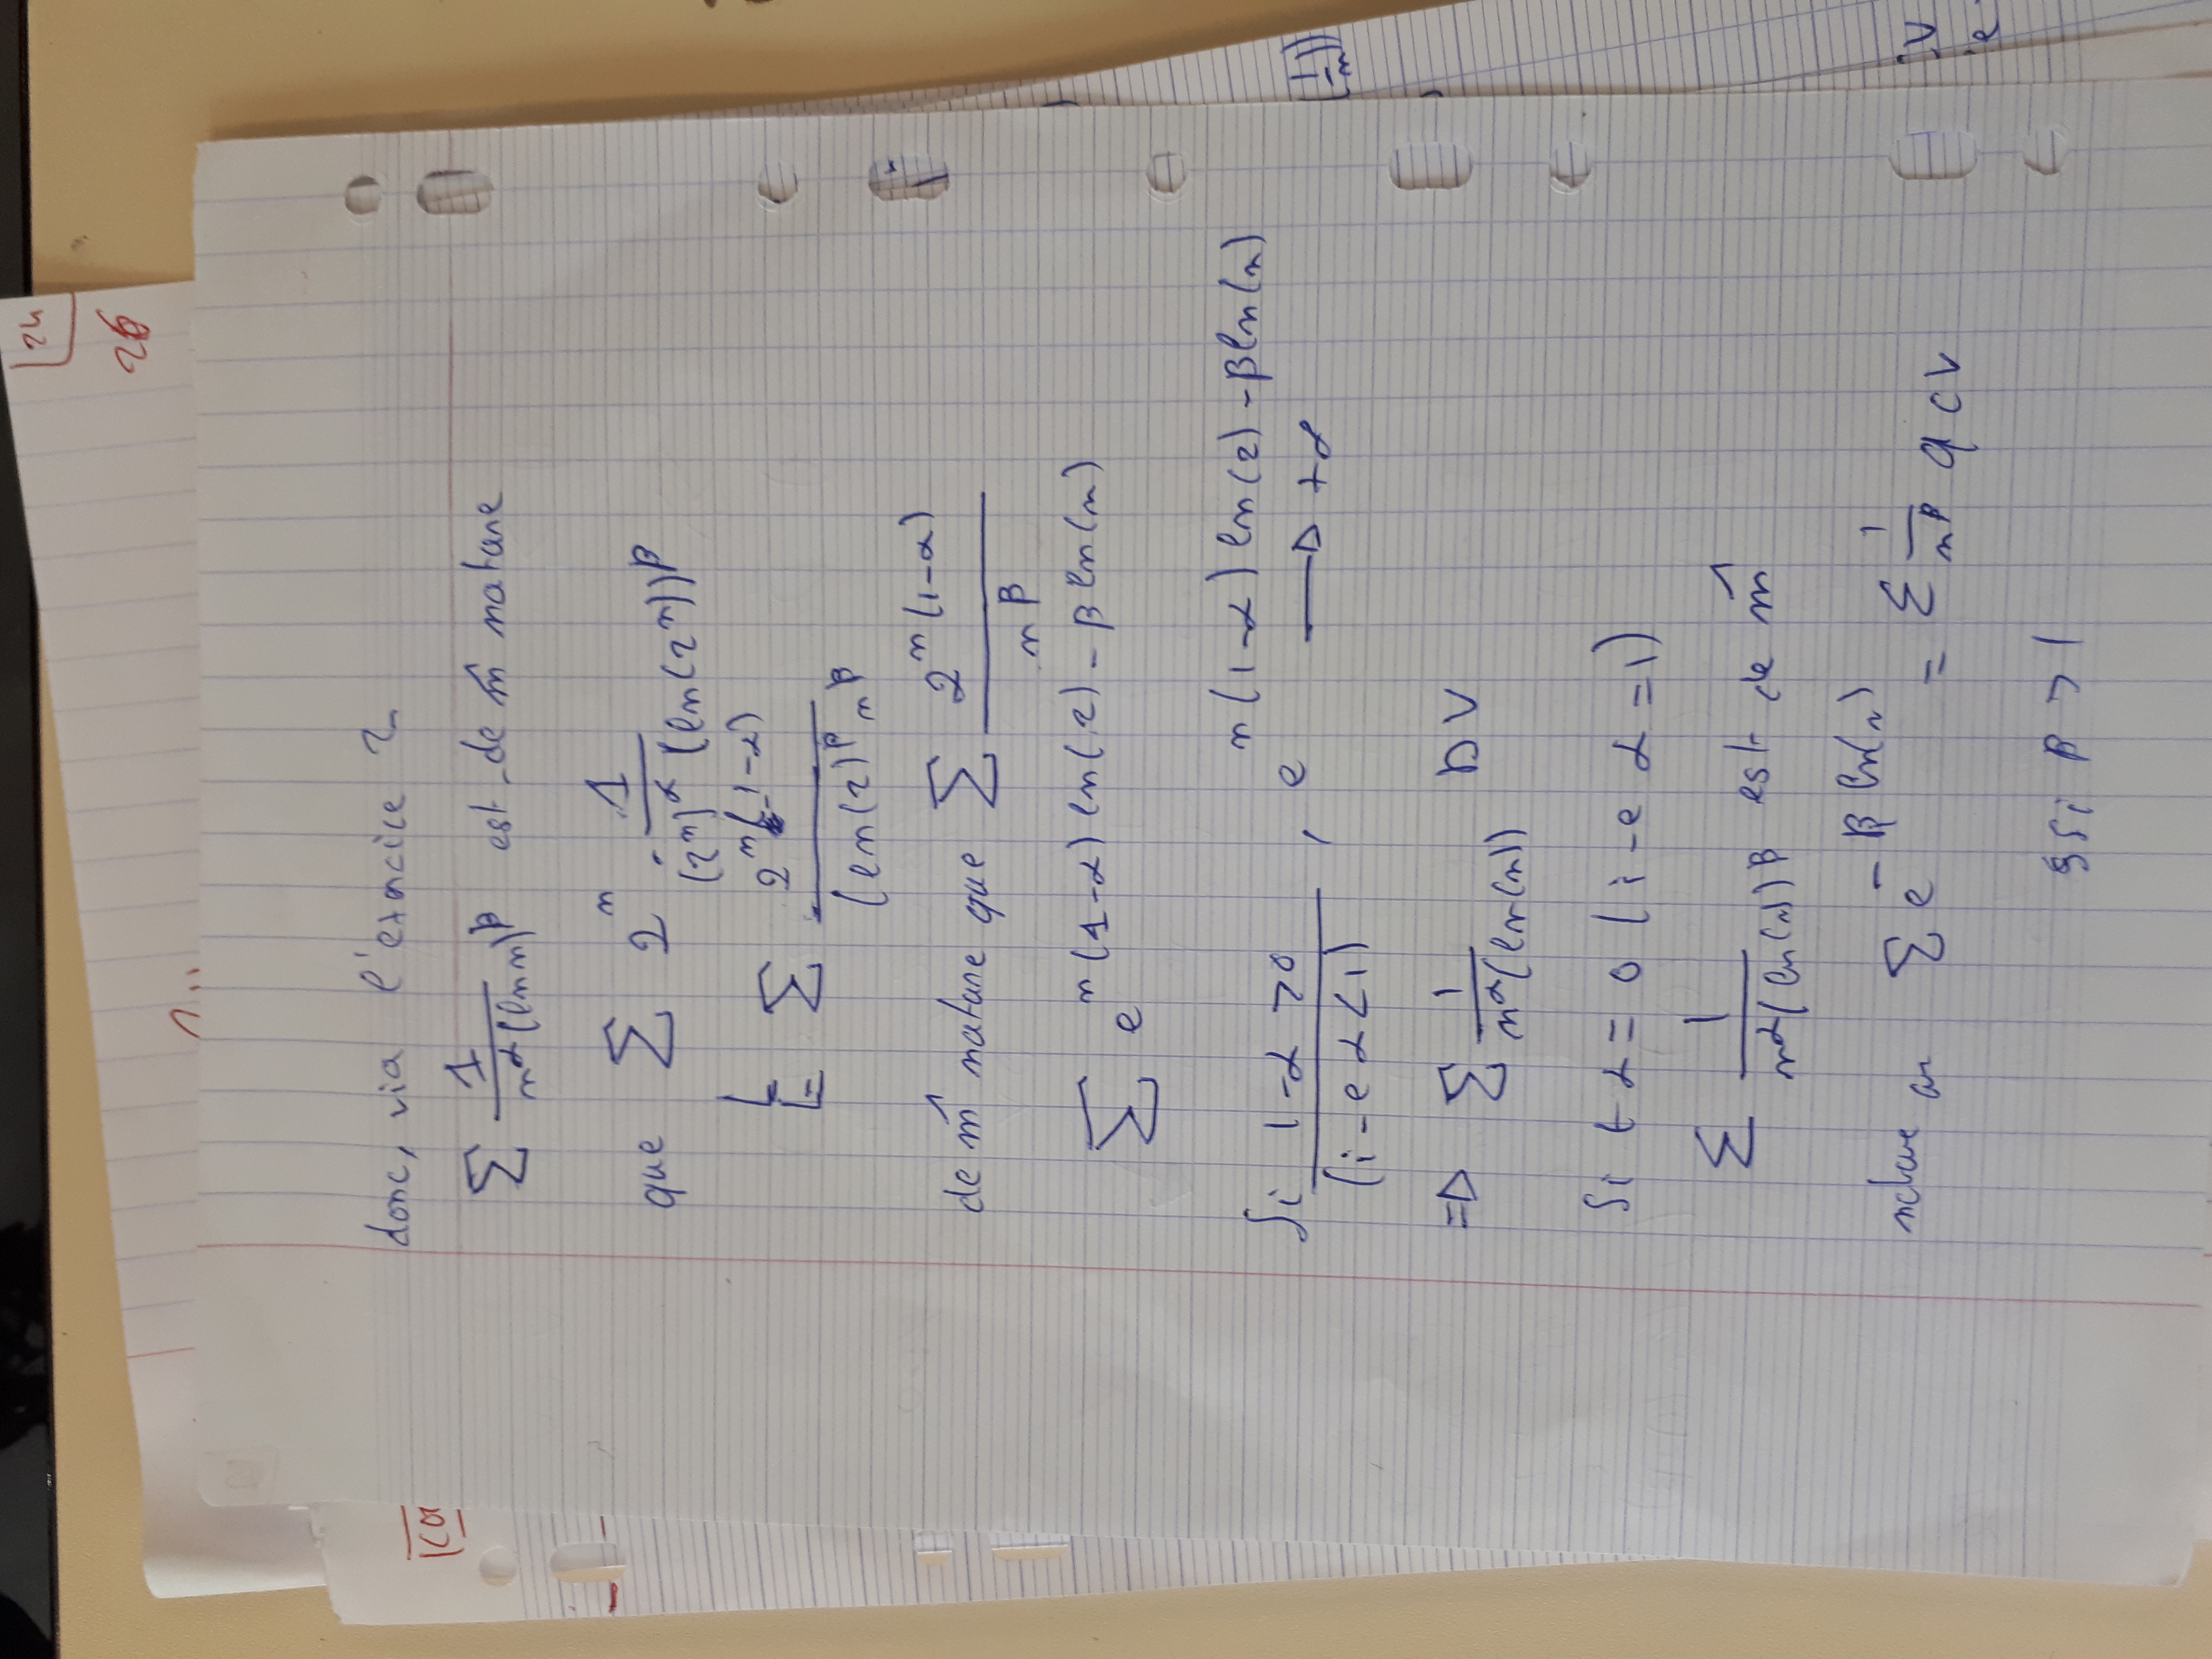 donc, via l'exercice 2
Σ 1/(n^α (ln n)^β) est de m̂ nature
que Σ 2^n · 1/((2^n)^α (ln(2^n))^β)
Σ 2^n(1-α)/((ln(2))^β n^β)
de m̂ nature que Σ 2^n(1-α)/n^β
Σ e^n(1-α)ln(2)-βln(n)
Si 1-α>0 , e^n(1-α)ln(2)-βln(n) → +∞
(i-e α<1)
⇒ Σ 1/(n^α(ln(n)) DV
Si 1-α=0 (i-e α=1)
Σ 1/(n^α(ln(n))^β est de m̂
nature que Σ e^-βln(n) = Σ 1/n^β q CV
SSi β>1
24
26